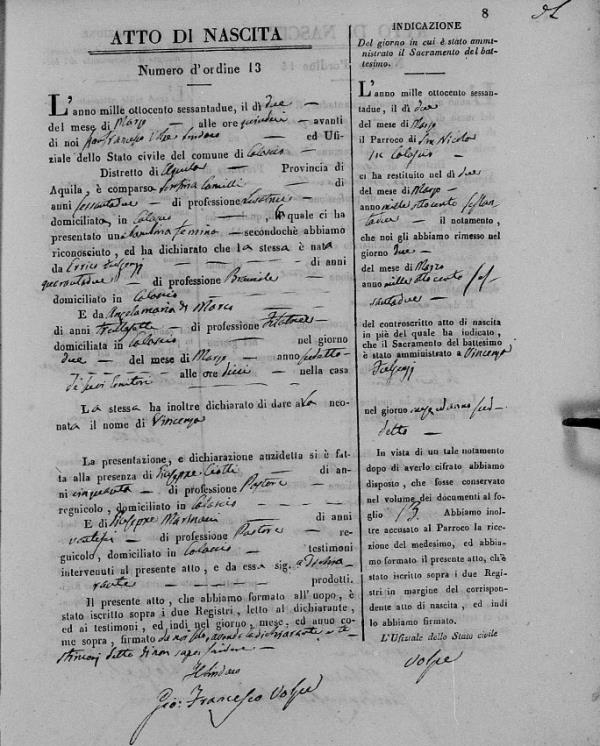 8
ATTO DI NASCITA
Numero d'ordine 13
L'anno mille ottocento sessantadue, il dì due
del mese di Marzo alle ore quindici avanti
di noi Gio: Francesco Volpe Sindaco ed Ufi-
ziale dello Stato civile del comune di Calascio
Distretto di Aquila Provincia di
Aquila, è comparsa Camilli di
anni sessantadue di professione Levatrice
domiciliata, in Calascio , la quale ci ha
presentato una bambina femina secondochè abbiamo
riconosciuto, ed ha dichiarato che la stessa è nata
da Errico Fulgenzi di anni
quarantadue di professione Bracciale
domiciliato in Calascio
E da Angelamaria di Marco
di anni trentasette di professione Filatrice
domiciliata in Calascio nel giorno
due del mese di Marzo anno sudetto
di suoi Genitori alle ore dieci nella casa
La stessa ha inoltre dichiarato di dare alla neo-
nata il nome di Vincenza
La presentazione, e dichiarazione anzidetta si è fat-
ta alla presenza di Giuseppe Ciotti di an-
ni cinquanta di professione Pastore
regnicolo, domiciliato in Calascio
E di Giuseppe Marinacci di anni
ventisei di professione Pastore re-
gnicolo, domiciliato in Calascio testimoni
intervenuti al presente atto, e da essa sig. a Dichia-
rante prodotti.
Il presente atto, che abbiamo formato all'uopo, è
stato iscritto sopra i due Registri, letto al dichiarante,
ed ai testimoni, ed indi nel giorno, mese, ed anno co-
me sopra, firmato da noi solo, avendo la dichiarante e te-
stimonj detto di non saper scrivere
Il Sindaco
Gio: Francesco Volpe
INDICAZIONE
Del giorno in cui è stato ammi-
nistrato il Sacramento del bat-
tesimo.
L'anno mille ottocento sessan-
tadue, il dì due
del mese di Marzo
il Parroco di San Nicola
in Calascio
ci ha restituito nel dì due
del mese di Marzo
anno mille ottocento sessan-
tadue il notamento,
che noi gli abbiamo rimesso nel
giorno due
del mese di Marzo
anno mille ottocento ses-
santadue
del controscritto atto di nascita
in piè del quale ha indicato,
che il Sacramento del battesimo
è stato amministrato a Vincenza
Fulgenzi
nel giorno mese ed anno sud-
detto
In vista di un tale notamento
dopo di averlo cifrato abbiamo
disposto, che fosse conservato
nel volume dei documenti al fo-
glio 13. Abbiamo inol-
tre accusato al Parroco la rice-
zione del medesimo, ed abbia-
mo formato il presente atto, ch'è
stato iscritto sopra i due Regi-
stri in margine del corrispon-
dente atto di nascita, ed indi
lo abbiamo firmato.
L'Ufiziale dello Stato civile
Volpe